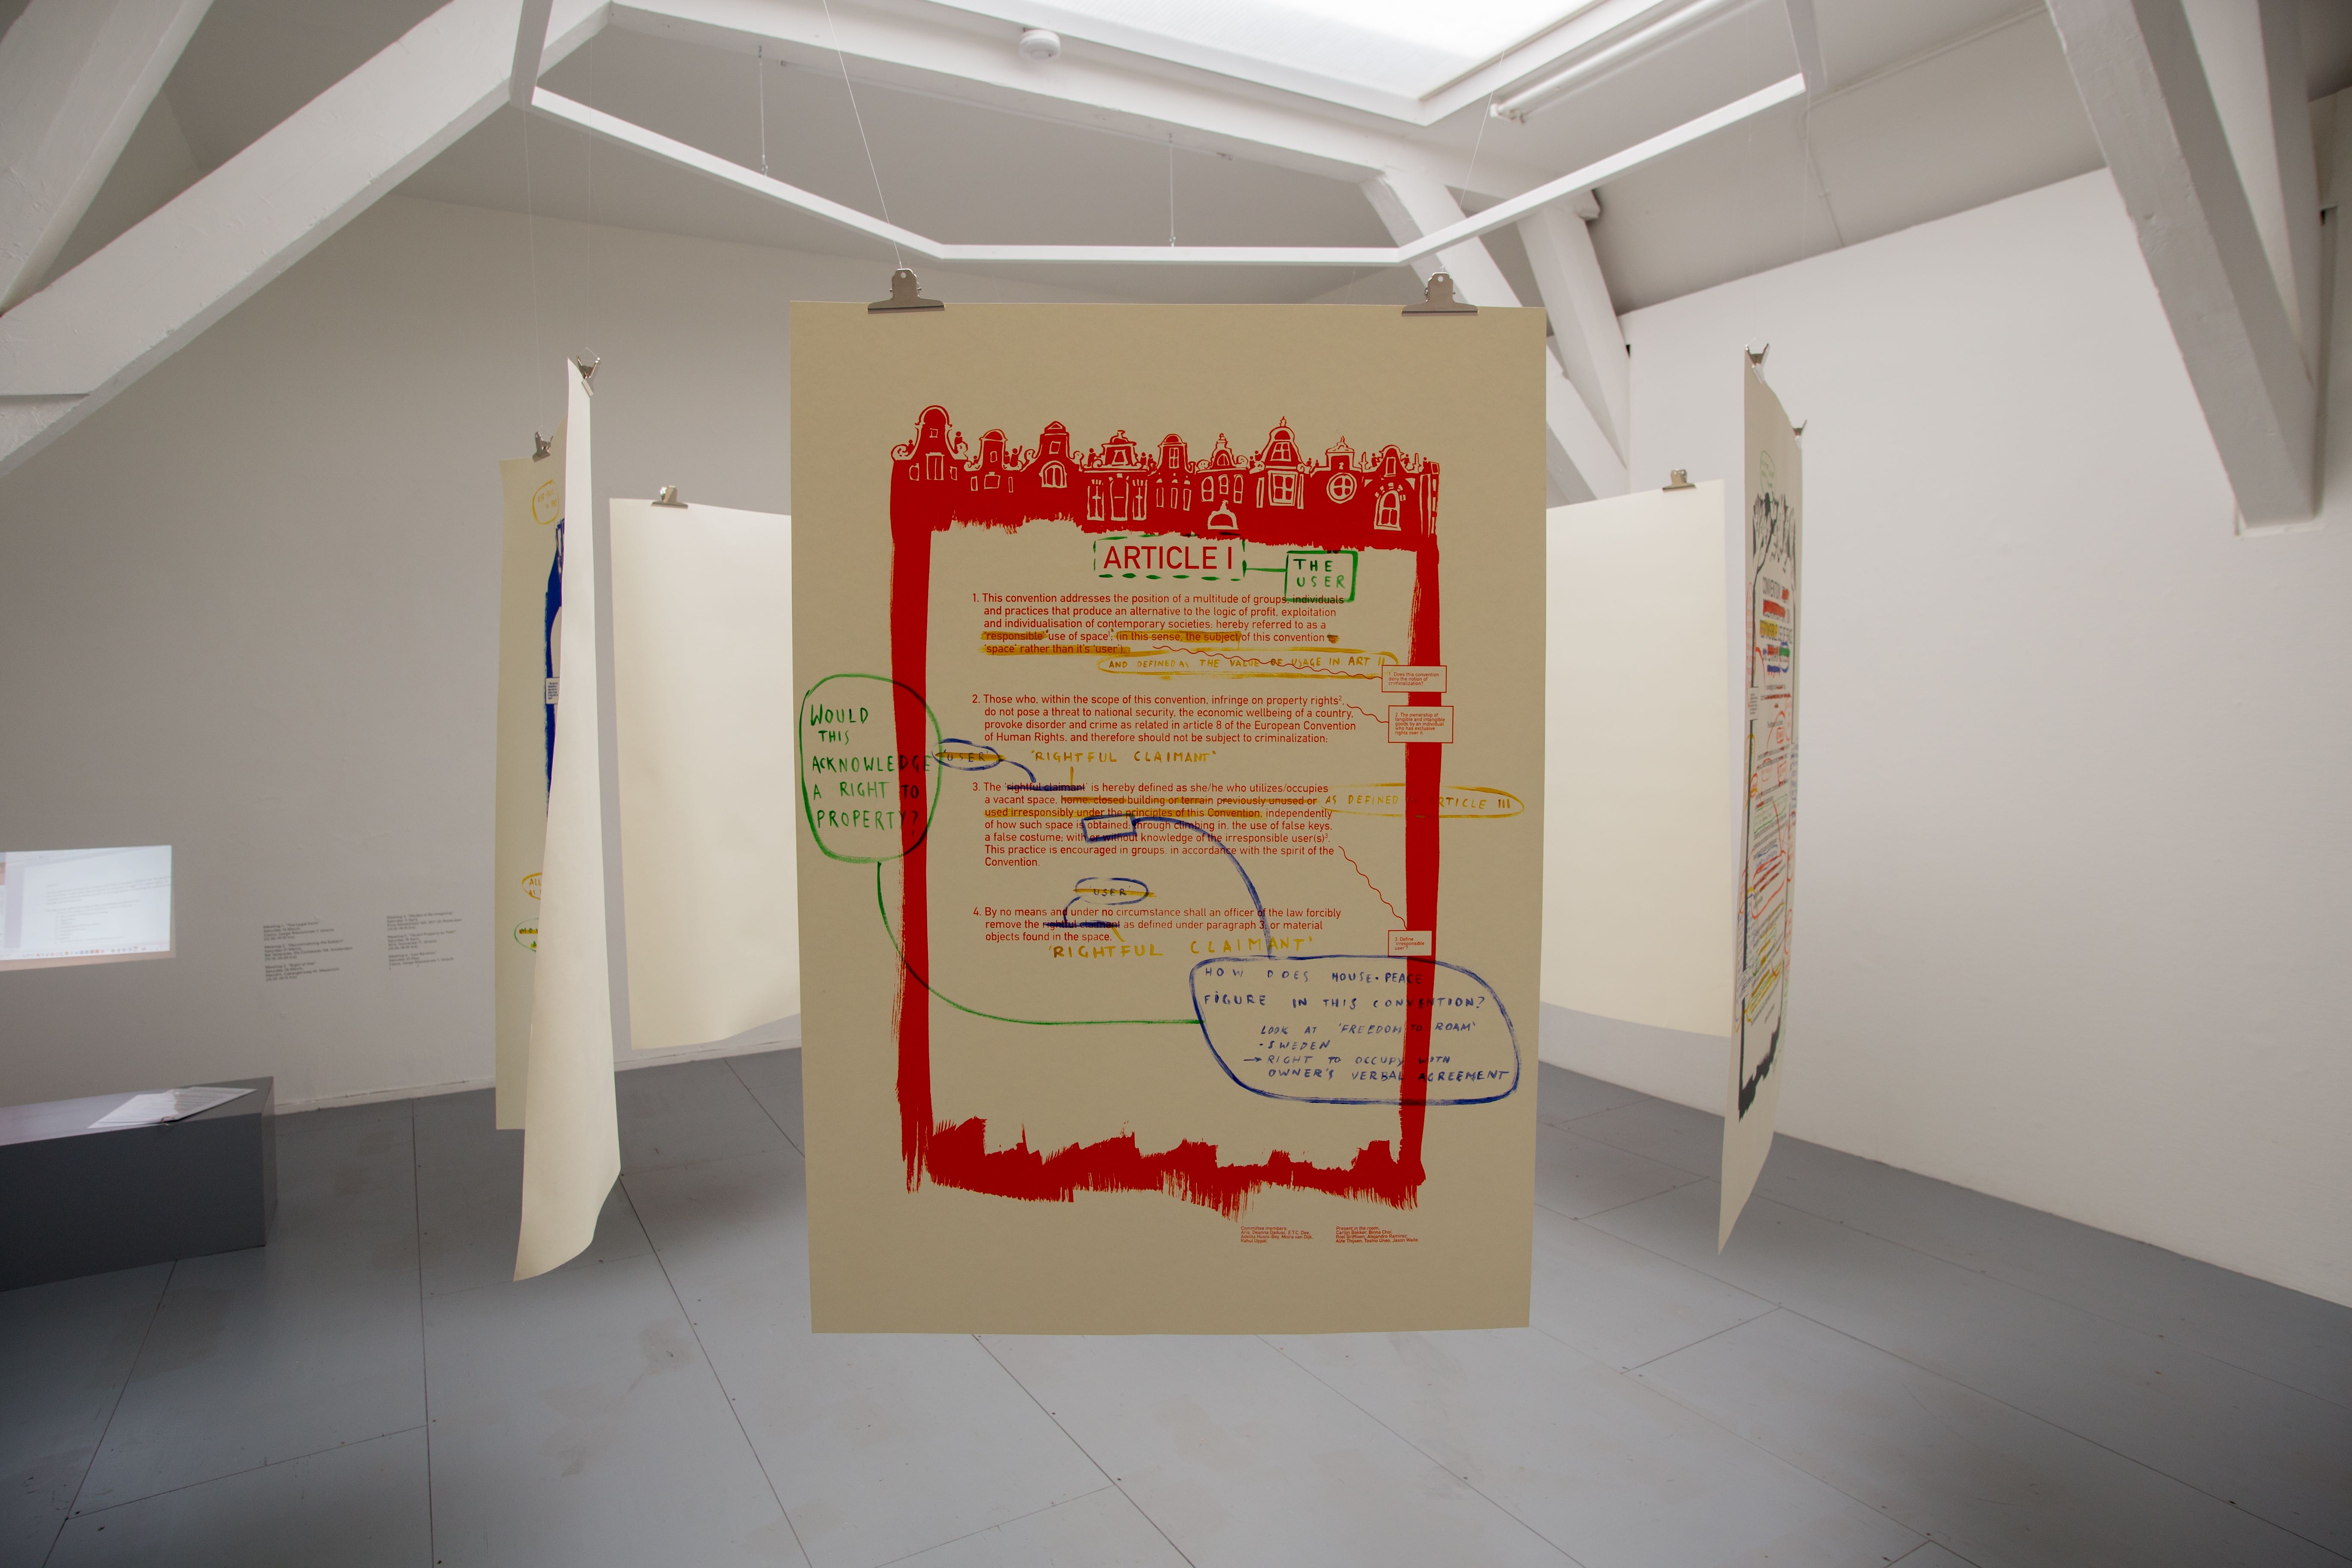 ARTICLE I
THE
USER
1. This convention addresses the position of a multitude of groups, individuals
and practices that produce an alternative to the logic of profit, exploitation
and individualisation of contemporary societies; hereby referred to as a
'responsible' use of space¹; (in this sense, the subject of this convention
'space' rather than it's 'user').
AND DEFINED AS THE VALUE OF USAGE IN ART II
1. Does this convention
deny the notion of
criminalization?
2. Those who, within the scope of this convention, infringe on property rights²,
do not pose a threat to national security, the economic wellbeing of a country,
provoke disorder and crime as related in article 8 of the European Convention
of Human Rights, and therefore should not be subject to criminalization;
2. The ownership of
tangible and intangible
goods by an individual
who has exclusive
rights over it.
WOULD
THIS
ACKNOWLEDGE
A RIGHT TO
PROPERTY?
'USER'
'RIGHTFUL CLAIMANT'
3. The 'rightful claimant' is hereby defined as she/he who utilizes/occupies
a vacant space, home, closed building or terrain previously unused or
AS DEFINED IN ARTICLE III
used irresponsibly under the principles of this Convention, independently
of how such space is obtained; through climbing in, the use of false keys,
a false costume; with or without knowledge of the irresponsible user(s)³.
This practice is encouraged in groups, in accordance with the spirit of the
Convention.
USER
4. By no means and under no circumstance shall an officer of the law forcibly
remove the rightful claimant as defined under paragraph 3, or material
objects found in the space.
'RIGHTFUL CLAIMANT'
3. Define
irresponsible
user
HOW DOES HOUSE-PEACE
FIGURE IN THIS CONVENTION?
LOOK AT 'FREEDOM TO ROAM'
- SWEDEN
→ RIGHT TO OCCUPY WITH
OWNER'S VERBAL AGREEMENT
Committee members:
Present in the room: